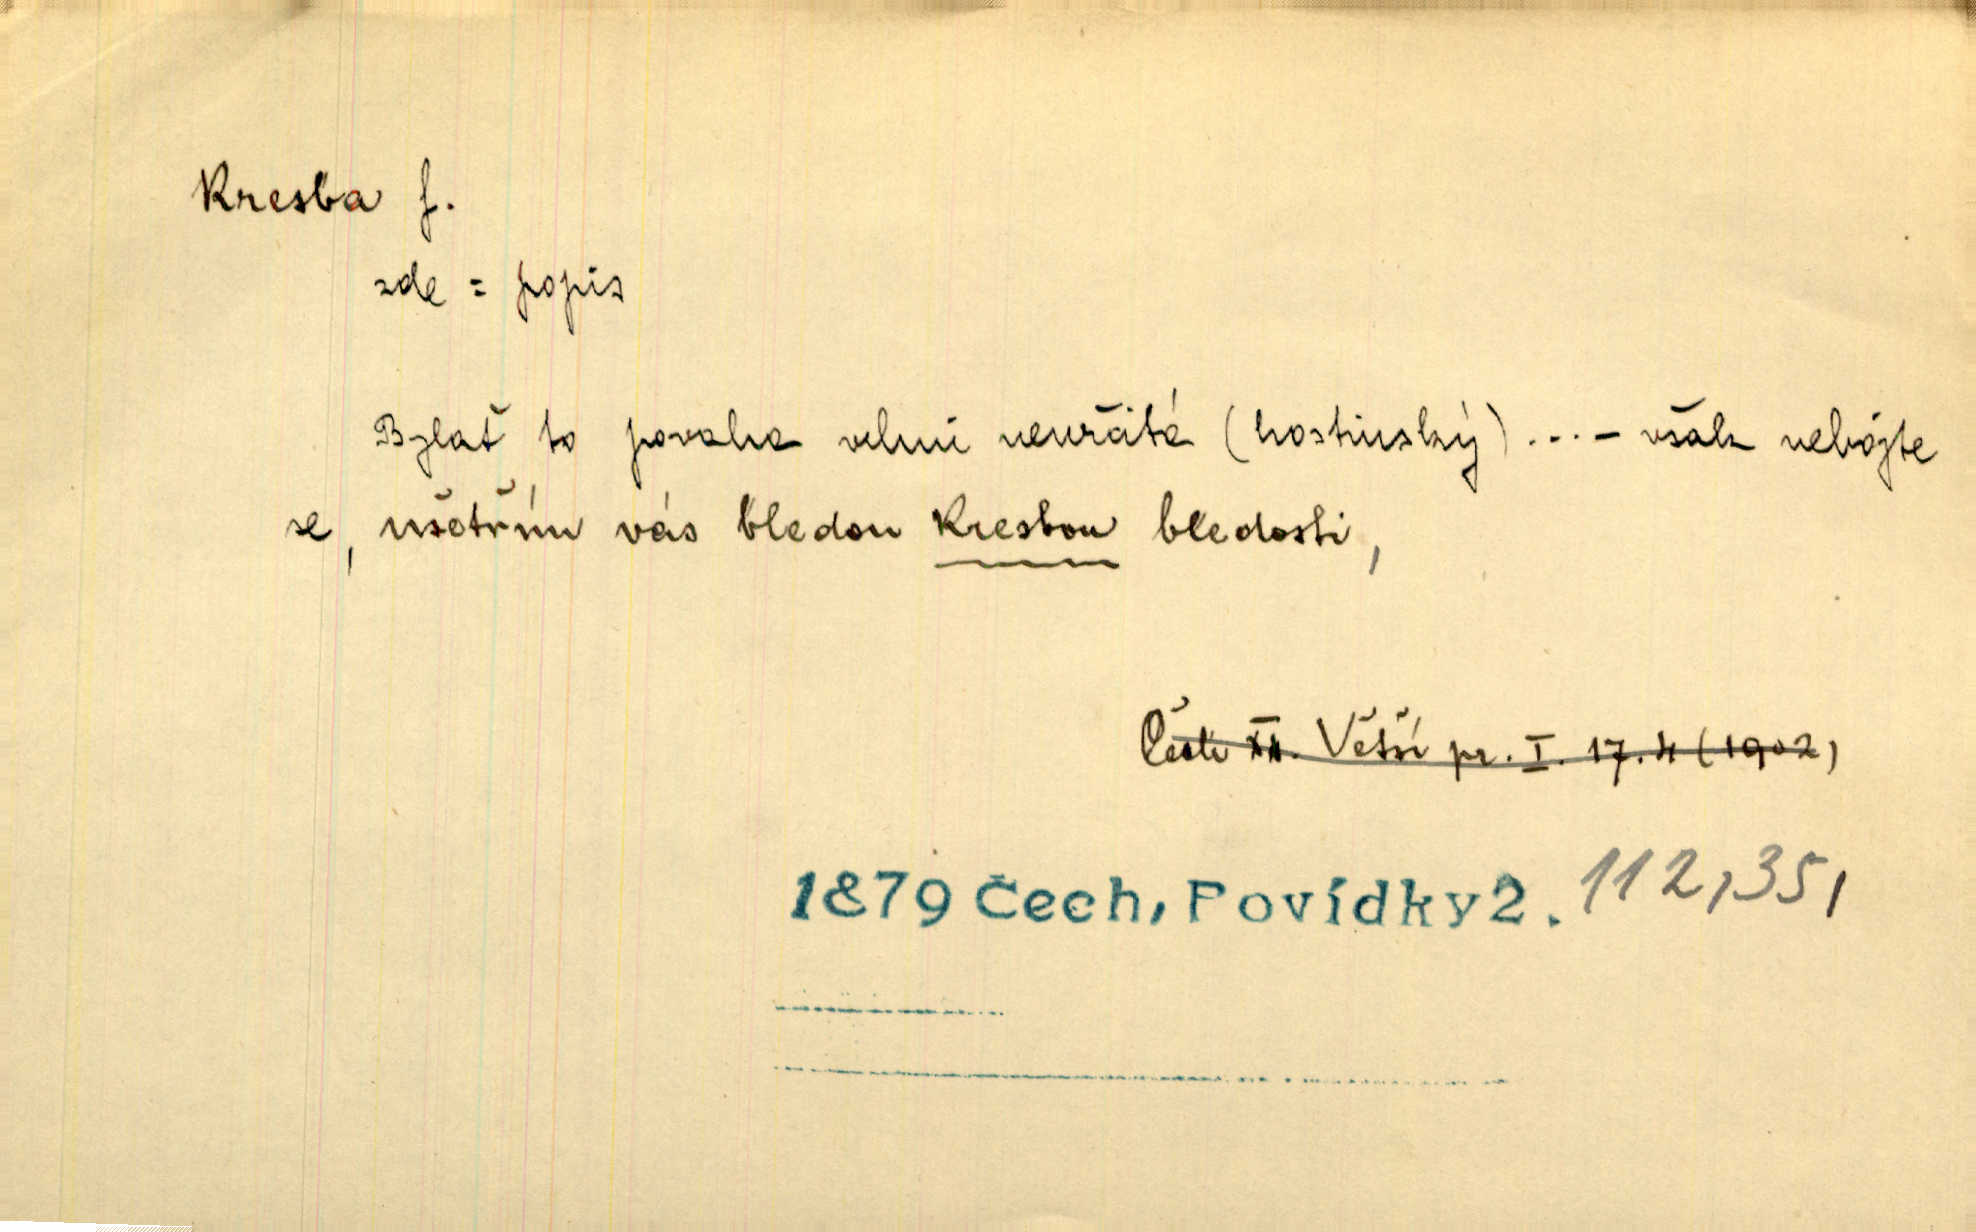 Kresba f.
zde = popis
Bylať to povaha velmi neurčitá (hostinský) ... – však nebojte
se, ušetřím vás bledou kresbou bledosti,
Čech XII. Větší pr. I. 17.4 (1902)
1879 Čech, Povídky 2. 112,35,